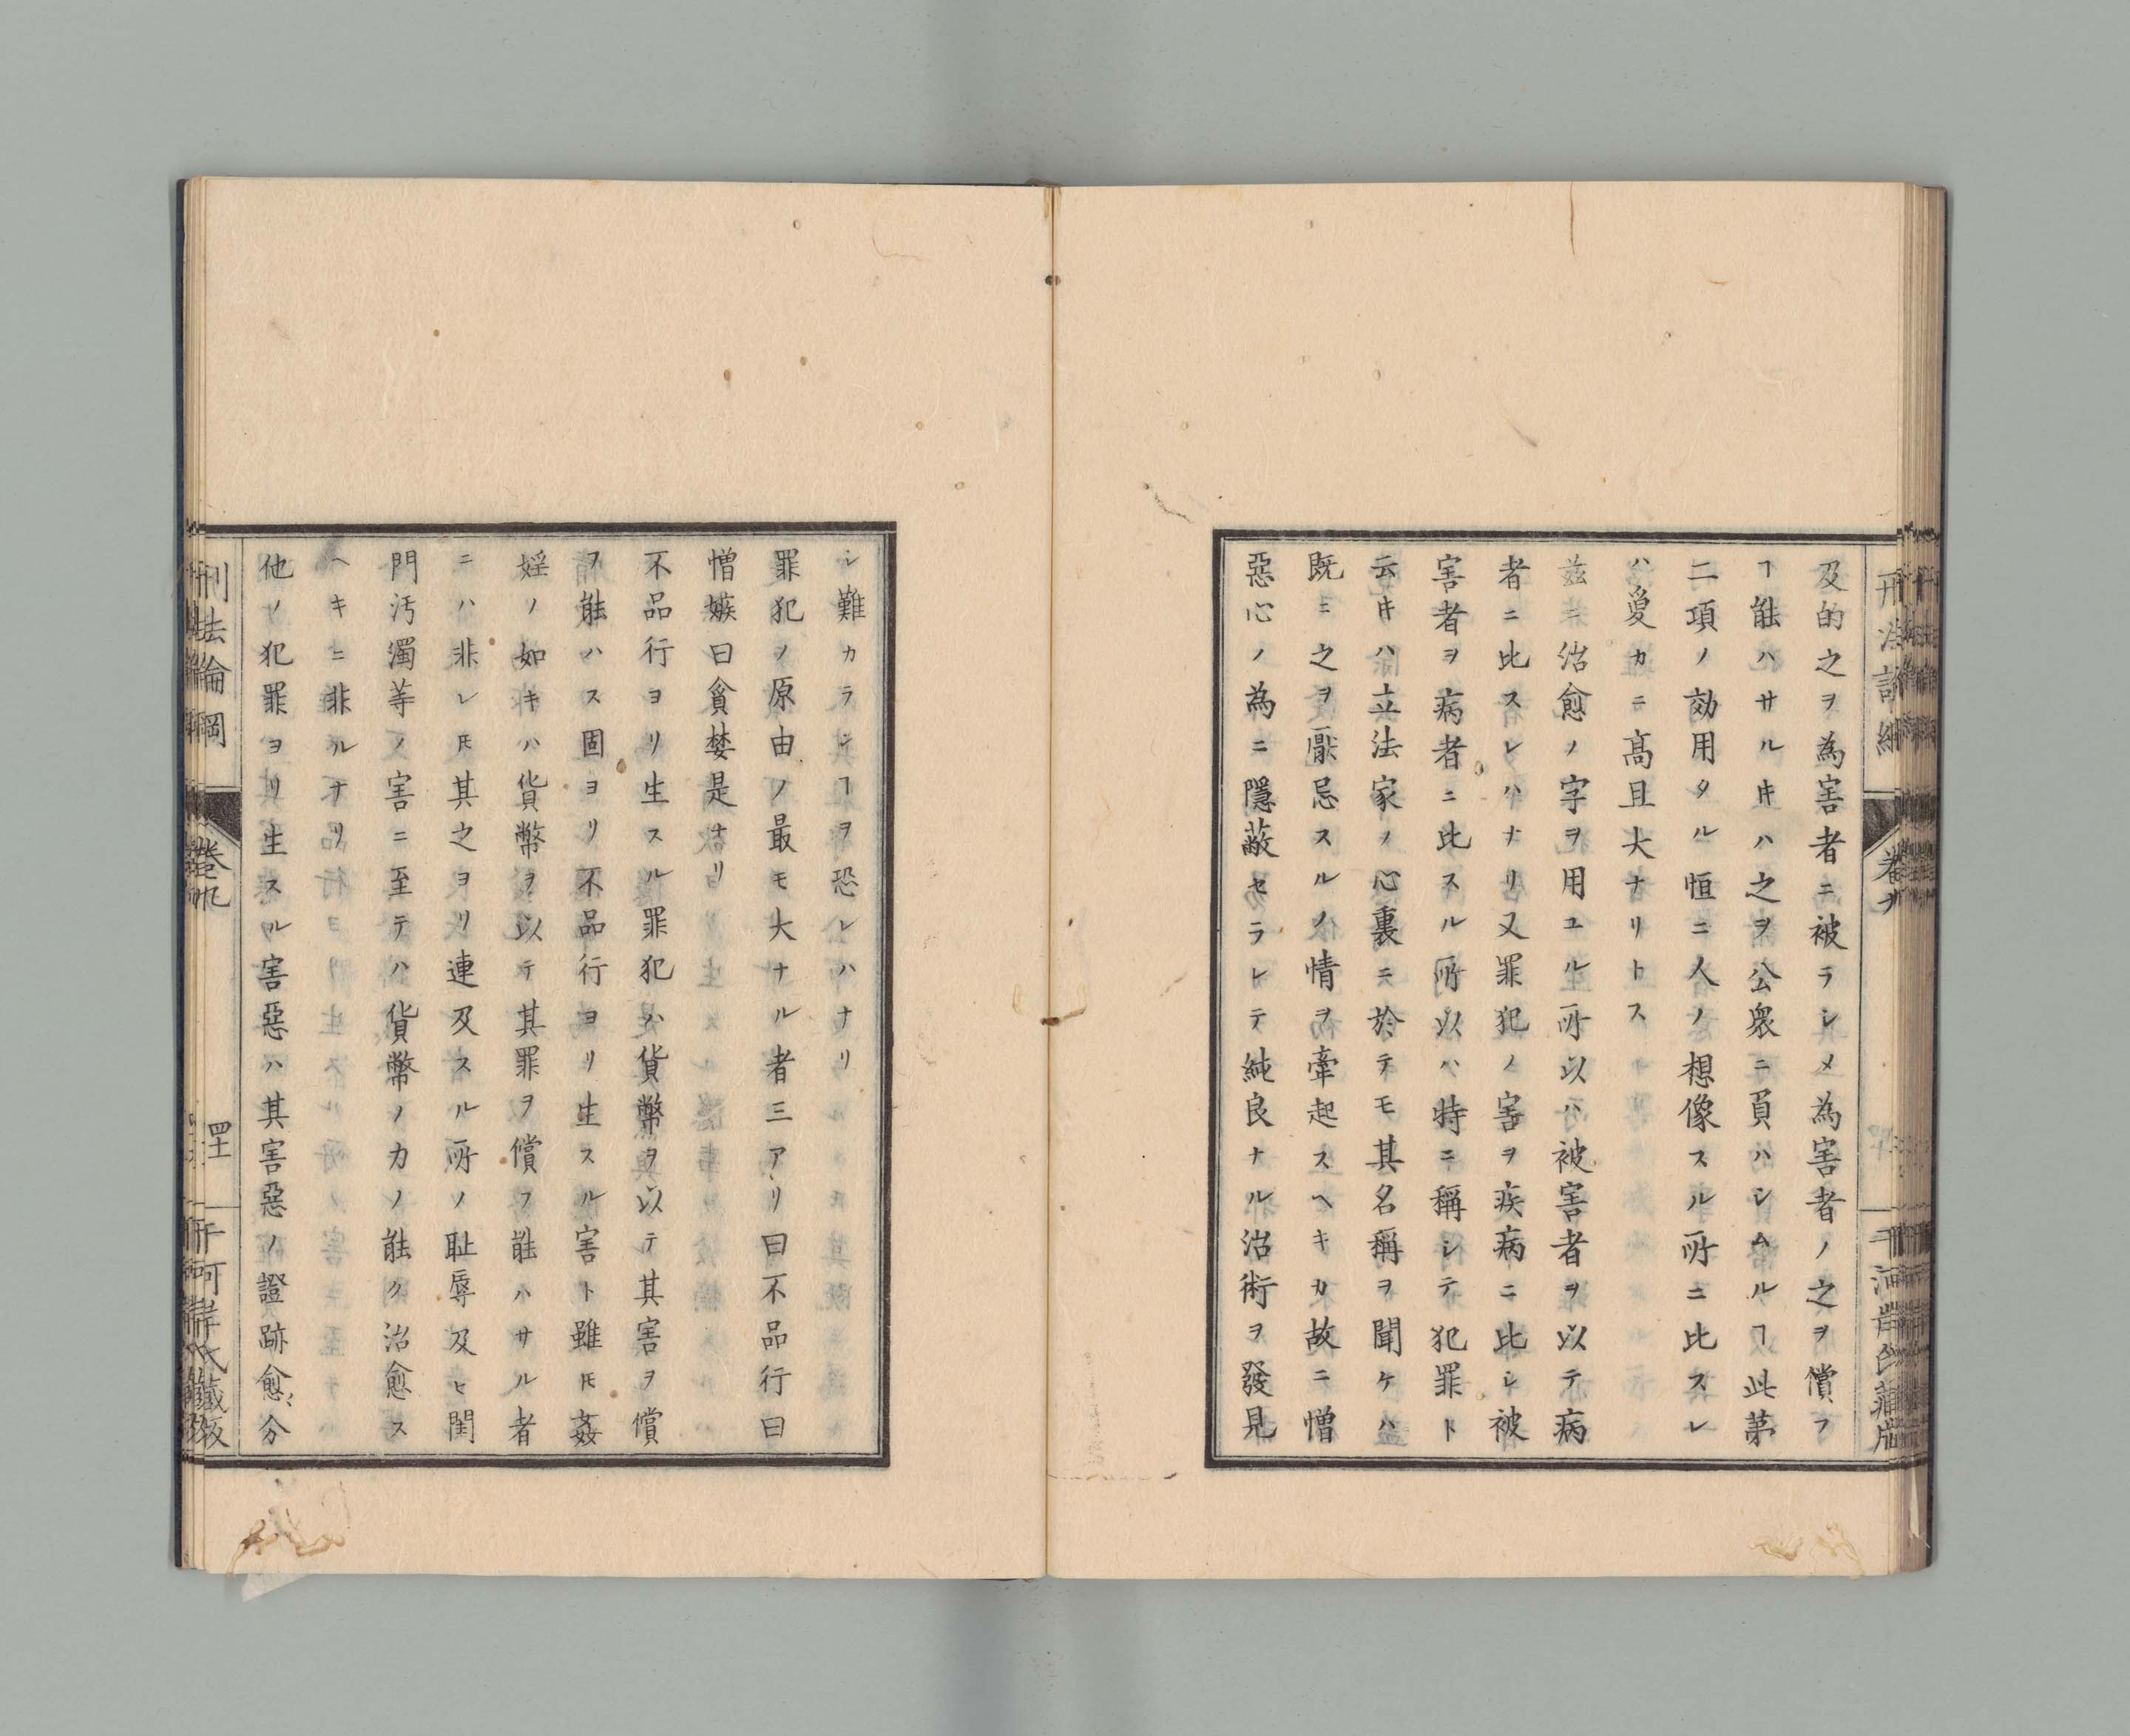 及的之ヲ為害者ニ被ラシメ為害者ノ之ヲ償フ
ヿ能ハサル𪜈ハ之ヲ公衆ニ負ハシムルヿ此第
二項ノ効用タル恒ニ人ノ想像スル所ニ比スレ
ハ夐カニ高且大ナリトス
茲ニ治愈ノ字ヲ用ユル所以ハ被害者ヲ以テ病
者ニ比スレハナリ又罪犯ノ害ヲ疾病ニ比シ被
害者ヲ病者ニ比スル所以ハ特ニ稱シテ犯罪ト
云キハ立法家ノ心裏ニ於テモ其名稱ヲ聞ケハ
既ニ之ヲ厭忌スルノ情ヲ牽起スヘキカ故ニ憎
惡心ノ為ニ隱蔽セラレテ純良ナル治術ヲ發見
シ難カラシヿヲ恐レハナリ
罪犯ノ原由ノ最モ大ナル者三アリ曰不品行曰
憎嫉曰貪婪是ナリ
不品行ヨリ生スル罪犯ハ貨幣ヲ以テ其害ヲ償
フ能ハス固ヨリ不品行ヨリ生スル害ト雖𪜈姦
婬ノ如キハ貨幣ヲ以テ其罪ヲ償フ能ハサル者
ニハ非レ𪜈其之ヨリ連及スル所ノ耻辱及ヒ閨
門汚濁等ノ害ニ至テハ貨幣ノカノ能ク治愈ス
ヘキニ非ルナリ
他ノ犯罪ヨリ生スル害惡ハ其害惡ノ證跡愈〻分
刑法論綱
卷九
四十
河岸氏藏版